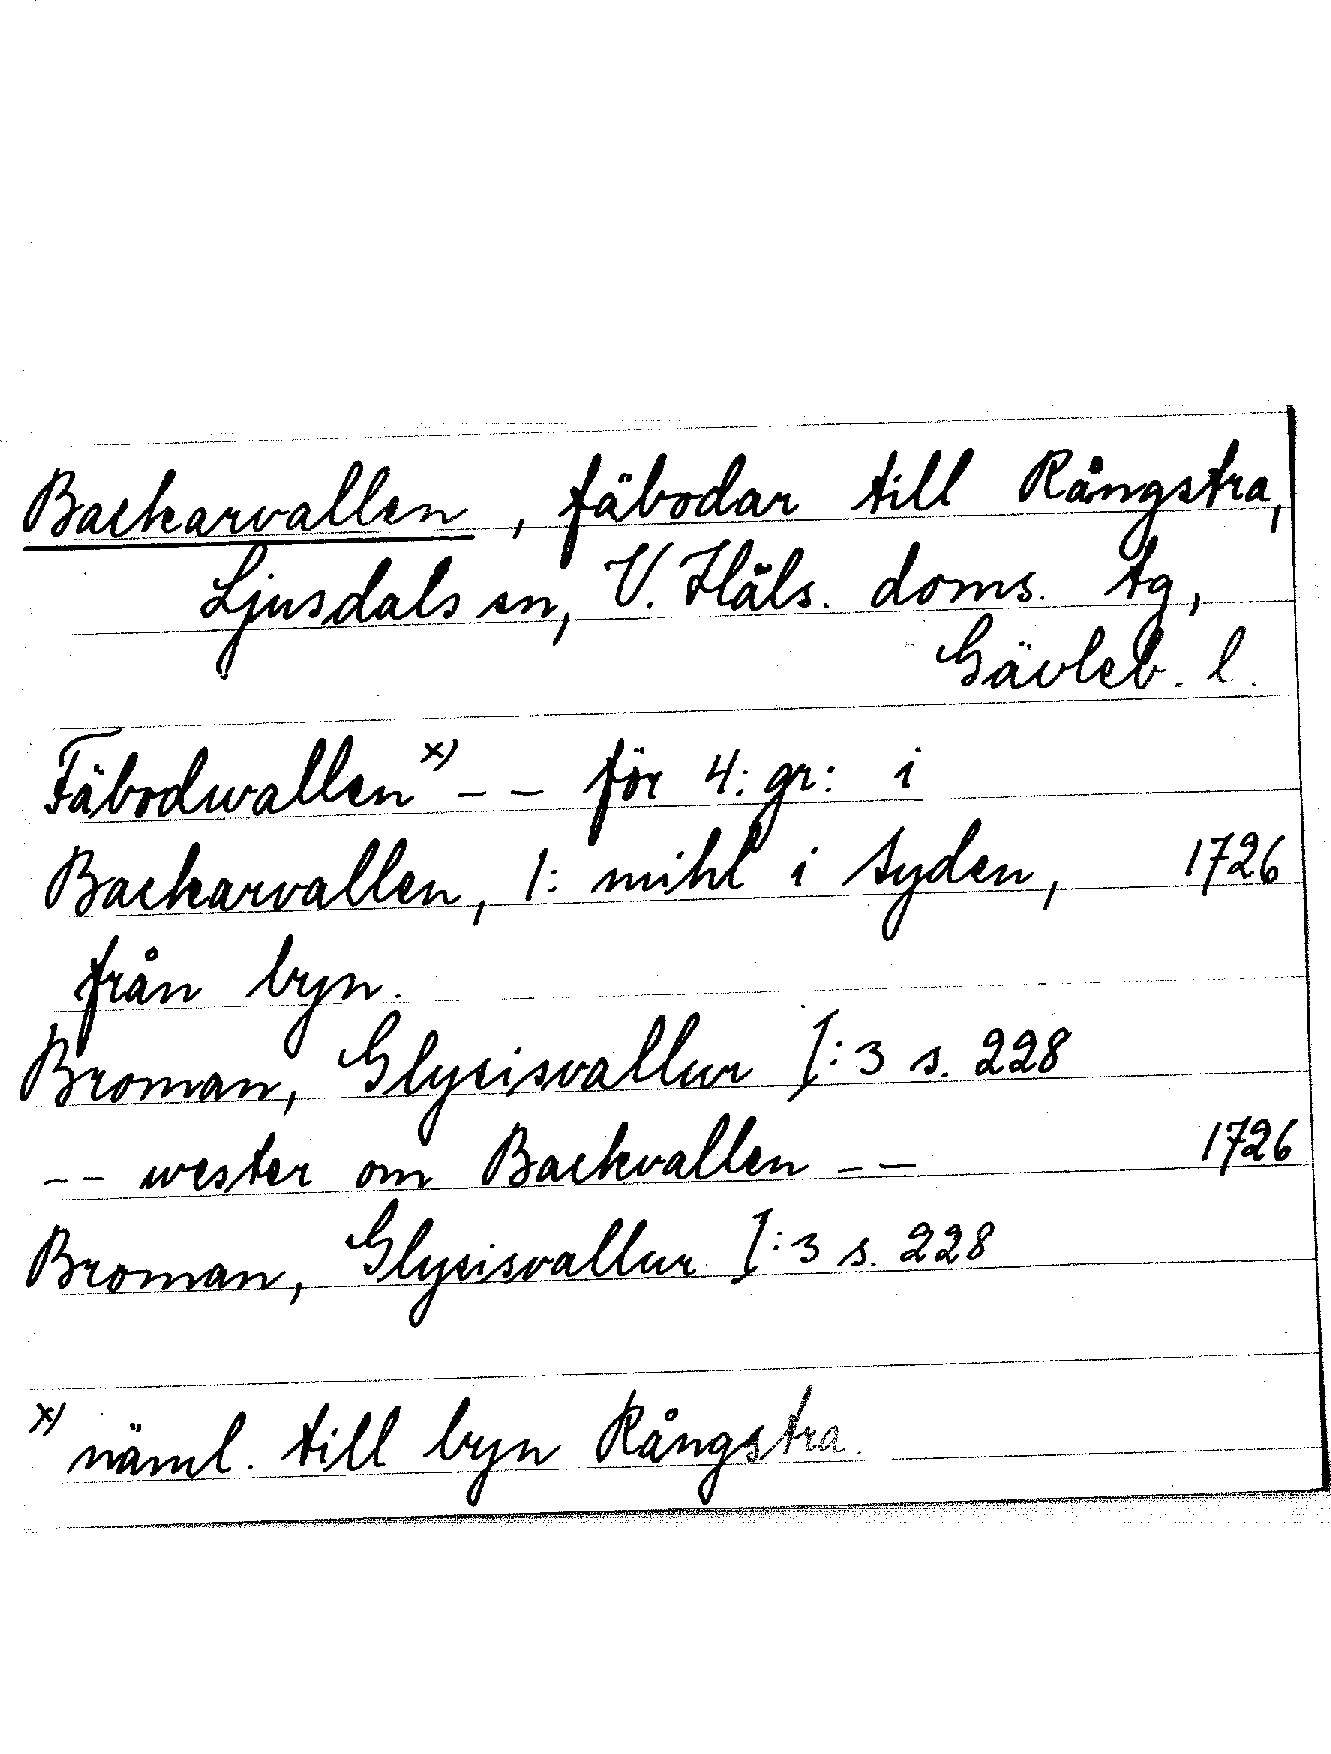 Backarvallen, fäbodar till Rångstra,
Ljusdals sn, V. Häls. doms. tg,
Gävleb. l.
Fäbodwallen x) -- för 4: gr: i
Backarvallen, 1: mihl i syden, 1726
från byn.
Broman, Glysisvallur I:3 s. 228
-- wester om Backvallen -- 1726
Broman, Glysisvallur I:3 s. 228
x) näml. till byn Rångstra.